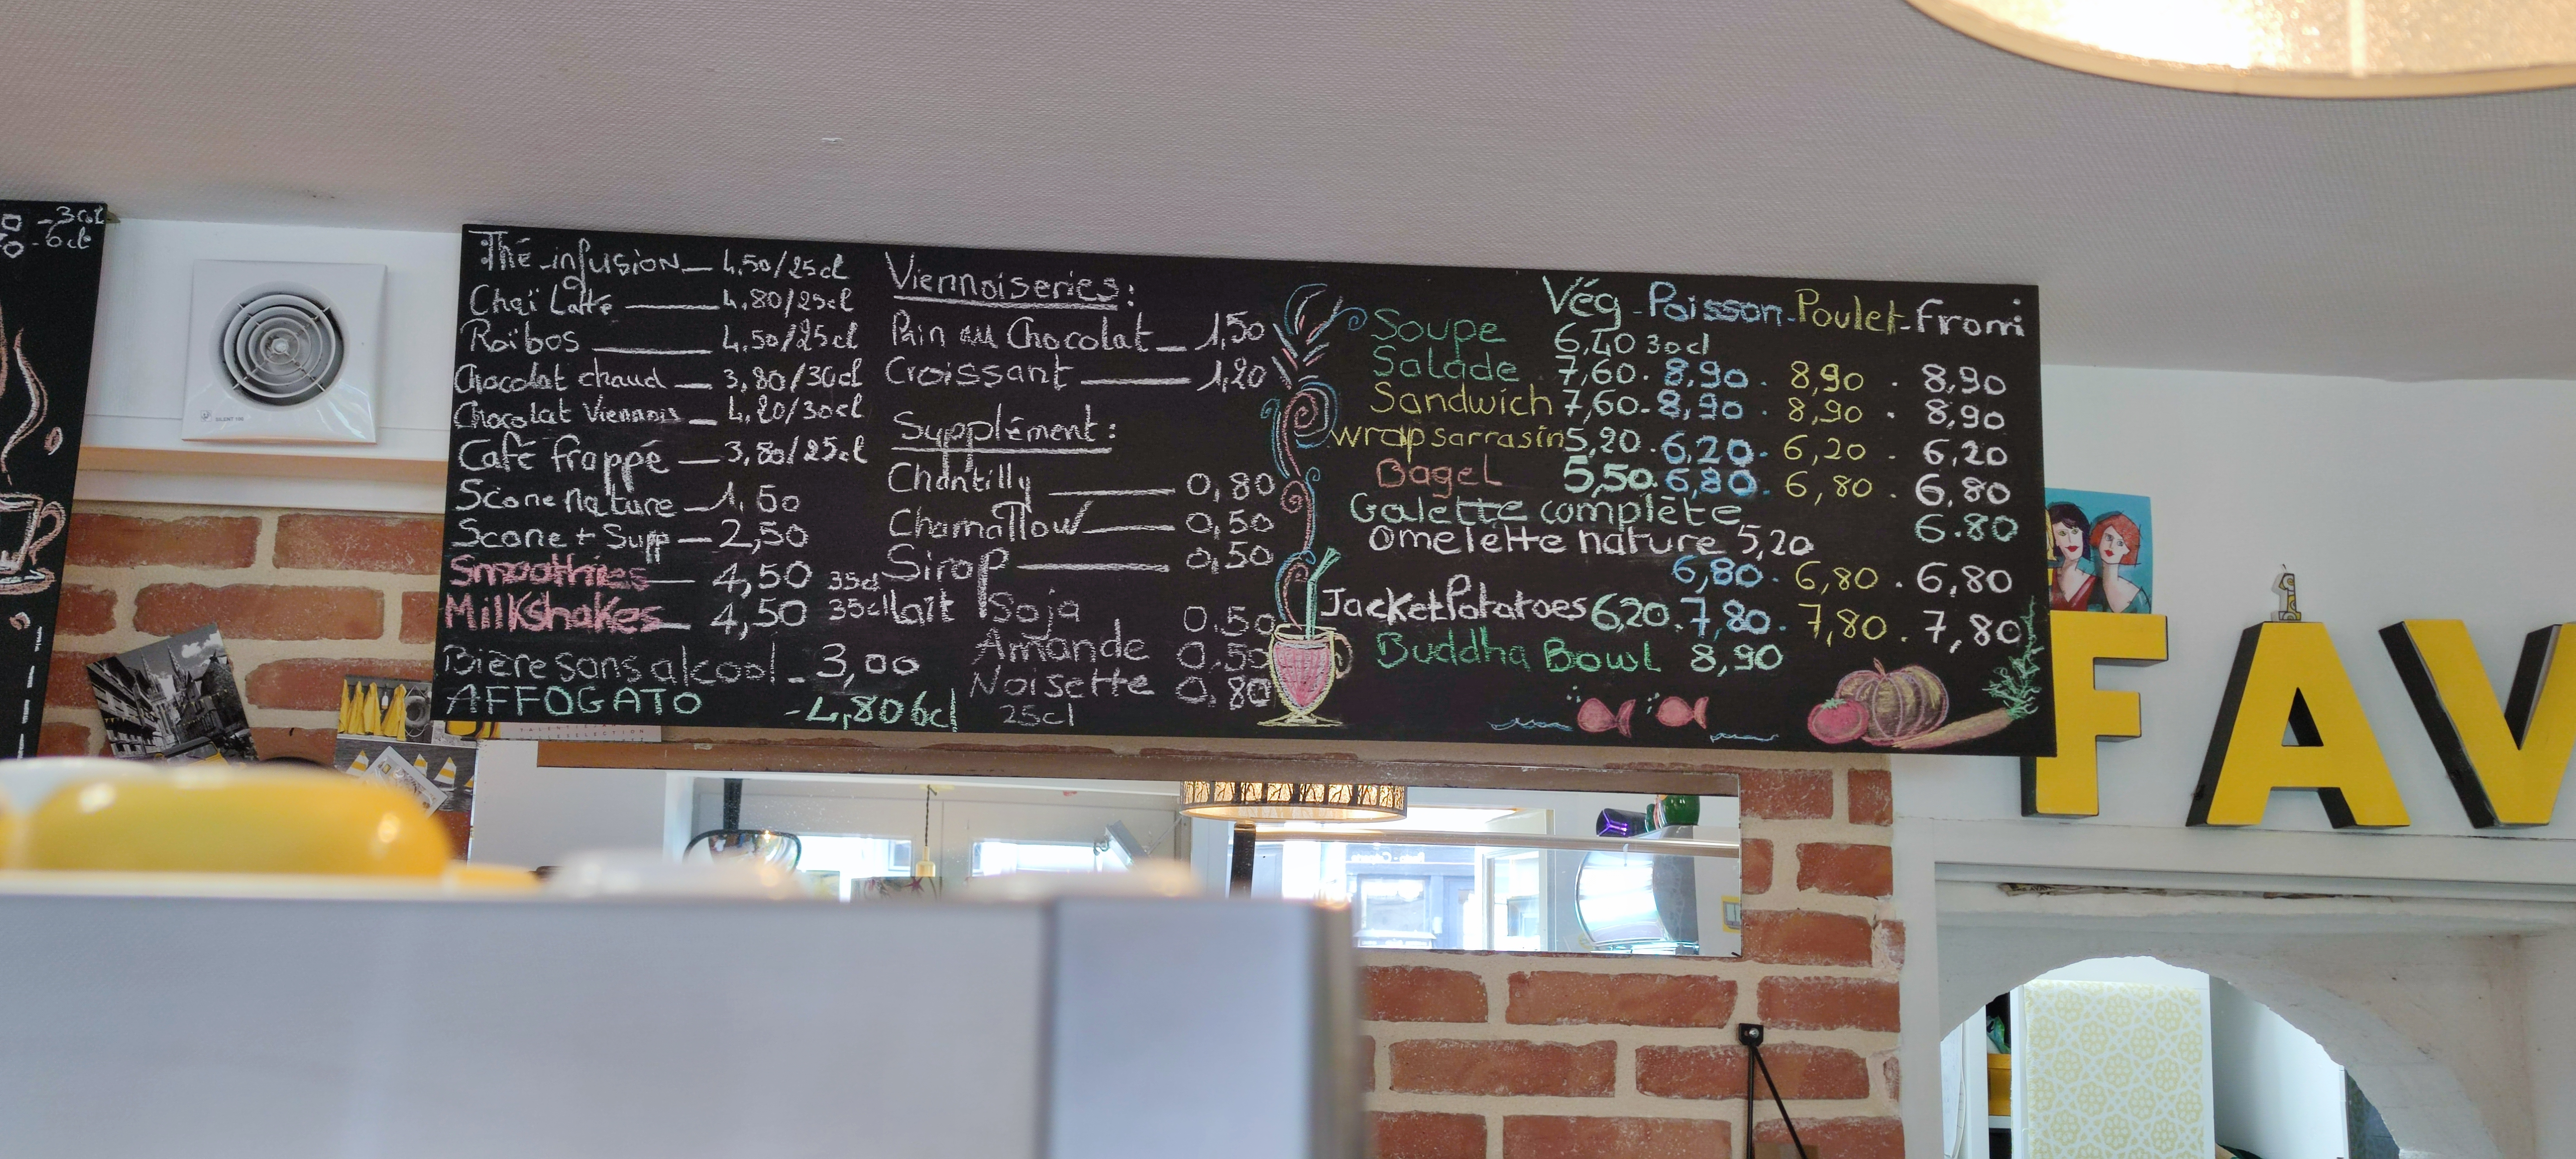 -30l
-6cl
SILENT 100
Thé-infusion — 4,50/25cl
Chaï Latte — 4,80/25cl
Roïbos — 4,50/25cl
Chocolat chaud — 3,80/30cl
Chocolat Viennois — 4,20/30cl
Café frappé — 3,80/25cl
Scone Nature — 1,60
Scone + Supp — 2,50
Smoothies — 4,50 35cl
Milkshakes — 4,50 35cl
Bière sans alcool - 3,00
AFFOGATO - 4,80 6cl
Viennoiseries:
Pain au Chocolat — 1,50
Croissant — 1,20
Supplément:
Chantilly — 0,80
Chamallow — 0,50
Sirop — 0,50
lait Soja 0.50
Amande 0.50
Noisette 0,80
25cl
Vég - Poisson - Poulet - fromi
Soupe 6,40 30cl
Salade 7,60. 8,90 . 8,90 . 8,90
Sandwich 7,60. 8,90 . 8,90 . 8,90
wrap sarrasin 5,20 . 6,20 . 6,20 . 6,20
Bagel 5,50. 6,80 . 6,80 . 6,80
Galette complète 6.80
Omelette nature 5,20
6,80 . 6,80 . 6,80
Jacket Potatoes 6,20 . 7,80 . 7,80 . 7,80
Buddha Bowl 8,90
FAV